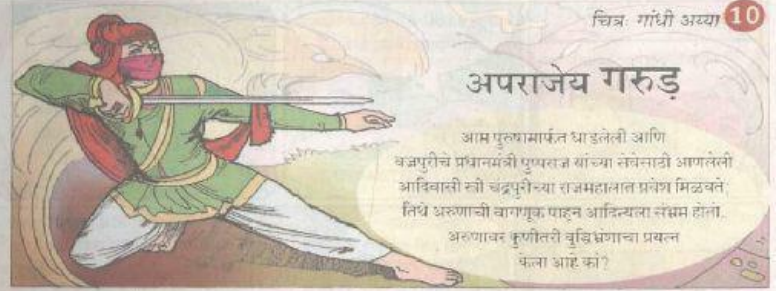 चित्र: गांधी अय्या 10
अपराजेय गरुड
आम पुरुषामार्फत धाडलेली आणि
वज्रपुरीचे प्रधानमंत्री पुष्पराज यांच्या सेवेसाठी आणलेली
आदिवासी स्त्री चंद्रपुरीच्या राजमहालात प्रवेश मिळवते;
तिथे अरुणाची वागणूक पाहून आदित्यला संभ्रम होतो..
अरुणावर कुणीतरी बुद्धिभ्रंशाचा प्रयत्न
केला आहे कां?